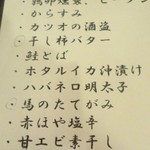 ・からすみ
・カツオの酒盗
・干し柿バター
・鮭とば
・ホタルイカ沖漬け
・ハバネロ明太子
・馬のたてがみ
・赤ほや塩辛
・甘エビ素干し